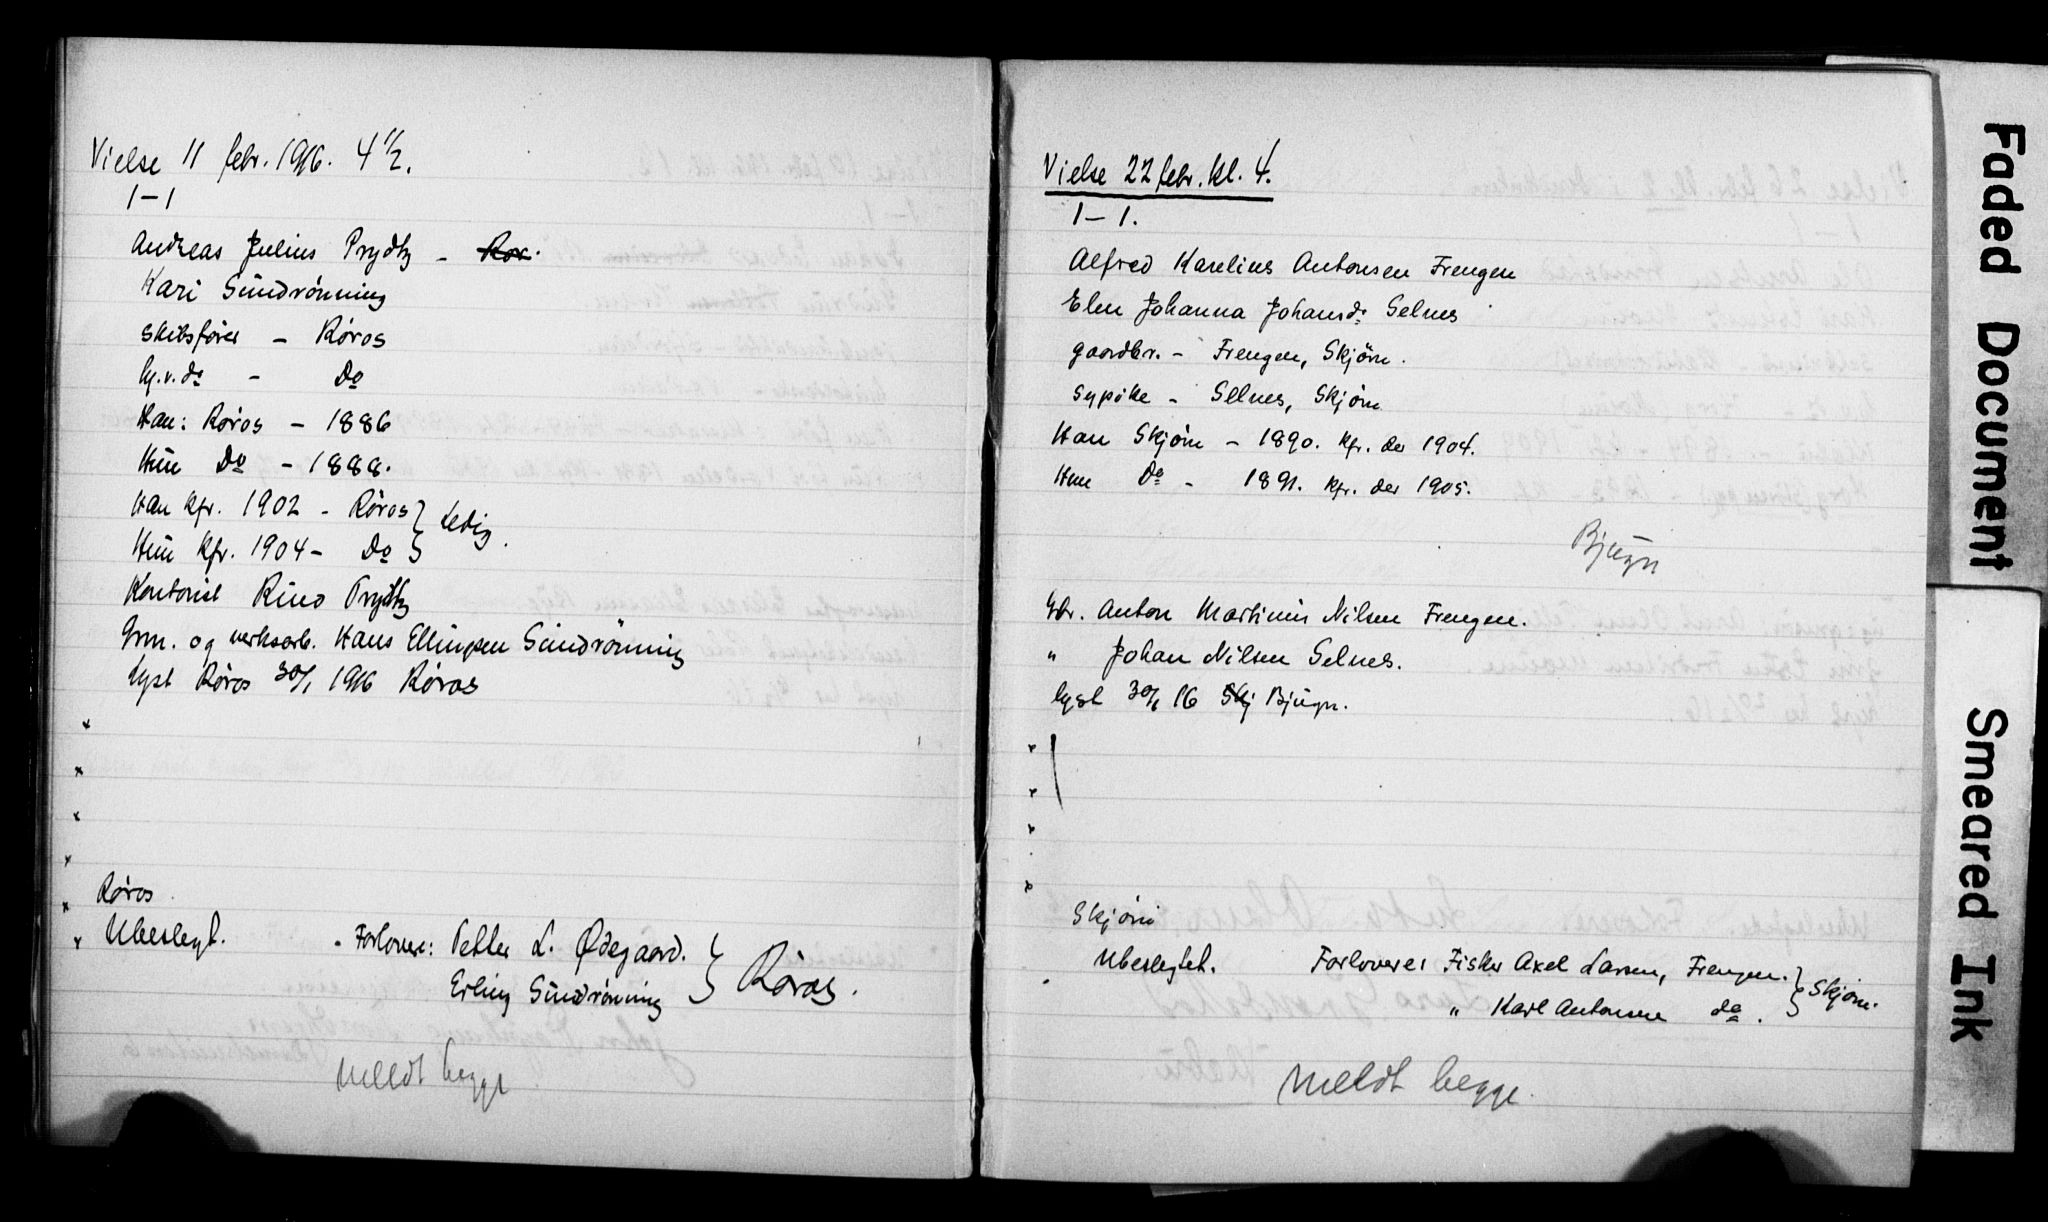 Vielse 11 febr. 1916. 4 1/2.
1-1
Andreas Julius Prydtz - Rør.
Kari Sundrønning
skibsfører - Røros
- Do
Han: Røros - 1886
Hun Do - 1888.
Han kfr. 1902 - Røros } Ledig.
Hun kfr. 1904 - Do }
Kontorist Prydtz
Grm. og verksarb. Hans Ellingsen Sundrønning
Lyst Røros 30/1 1916 Røros
Røros
Ubeslegt. - Forlovere: Petter L. Ødegaard. } Røros.
Erling Sundrønning }
Meldt begge
Vielse 22 febr. kl. 4.
1-1.
Alfred Karelius Antonsen Frengen
Elen Johanna Johansdr Selnes
gaardbr. - Frengen, Skjørn.
sypike - Selnes, Skjørn
Han Skjørn - 1890. kfr. der 1904.
Hun Do - 1891. kfr. der 1905.
Bjugn
Gbr. Anton Martinus Nilsen Frengen.
" Johan Nilsen Selnes.
lyst 30/1 16 Skj Bjugn.
Skjørn
Ubeslegtet. Forlovere: Fisker Axel Larsen, Frengen. } Skjørn.
" Karl Antonsen do. }
Meldt begge.
Faded Document
Smeared Ink